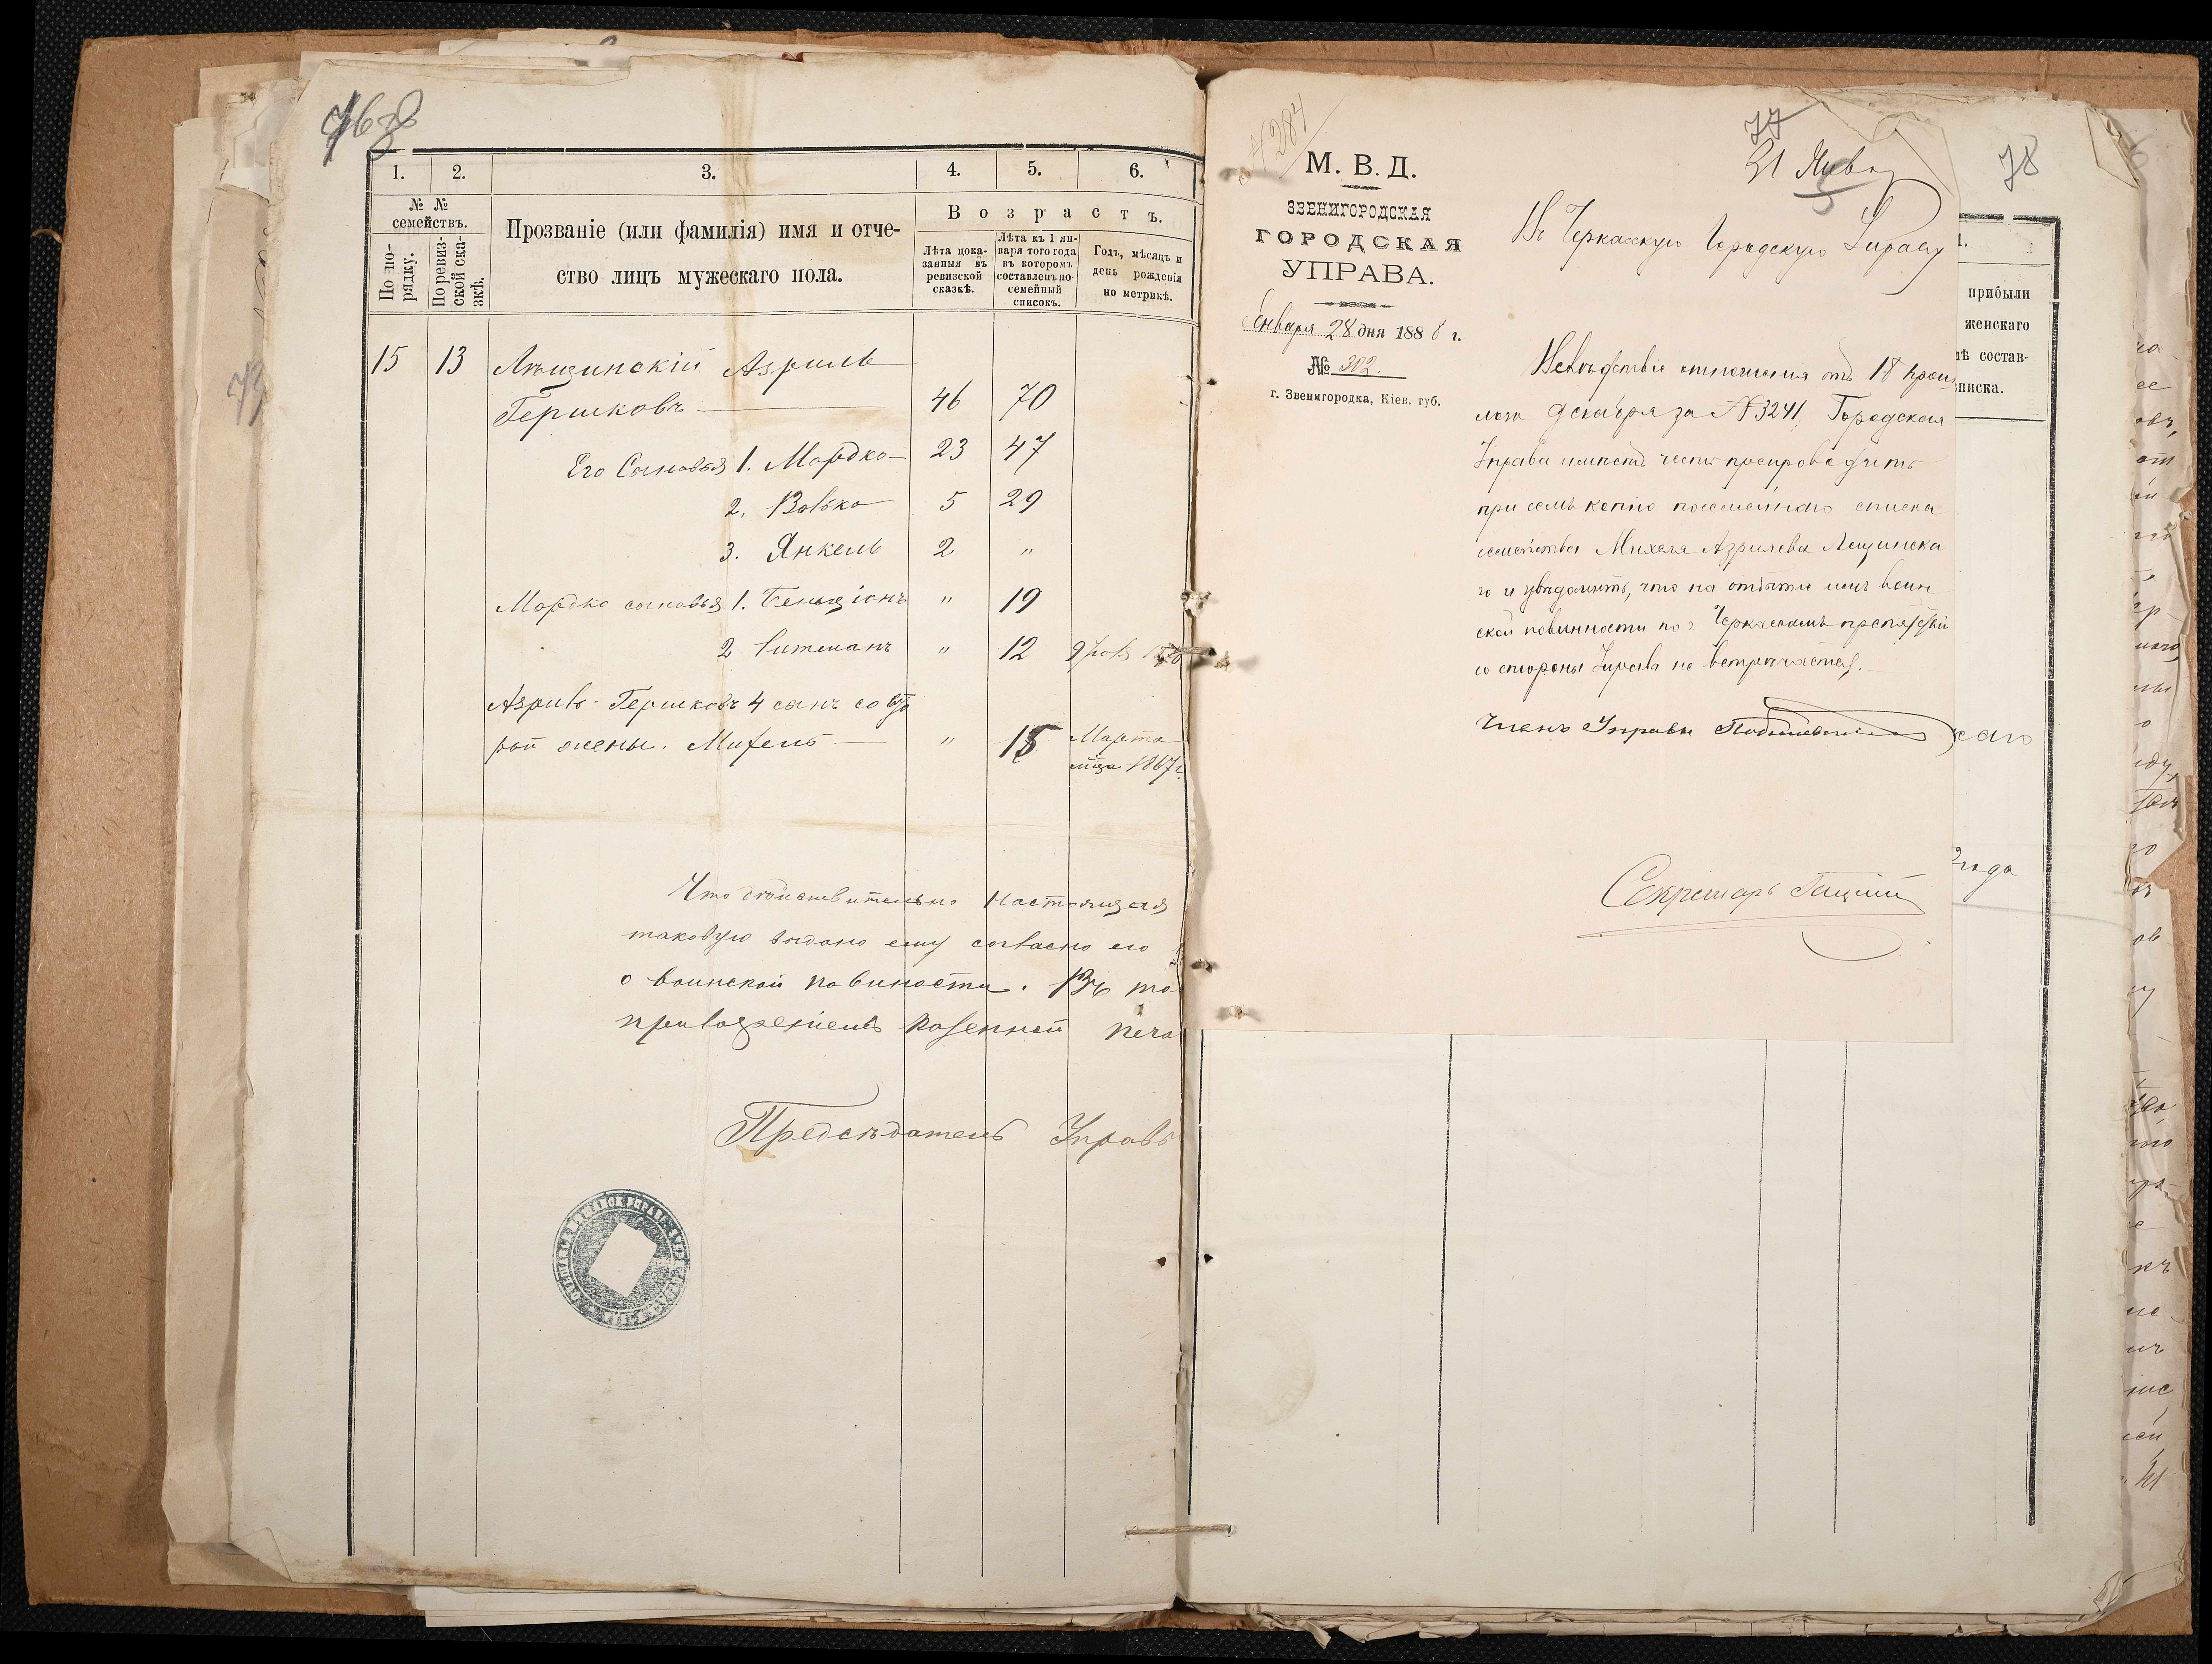 1. 2. 3. 4. 5. 6.
№ № семействъ.
По по-
рядку.
По ревиз-
ской ска-
зкѣ.
Прозваніе (или фамилія) имя и отче-
ство лицъ мужескаго пола.
Возрастъ.
Лѣта пока-
занныя въ
ревизской
сказкѣ.
Лѣта къ 1 ян-
варя того года
въ которомъ
составленъ по-
семейный
списокъ.
Годъ, мѣсяцъ и
день рожденія
по метрикѣ.
15 13 Лѣщинскій Азриль
Гершковъ 46 70
Его Сыновья 1. Мордко 23 47
2. Волько 5 29
3. Янкель 2 "
Мордко сыновья 1. Бенціонъ " 19
2 " 12
Азриль Гершковъ 4 сынъ со вто
рой жены. Михель " 15 Марта
мца 1867 г.
Что дѣйствительно настоящая
таковую выдано ему согласно его
о воинской повиности. Въ то
приложеніемъ казенной печа
Предсѣдатель Управы
77
78
31 Янва
М. В. Д.
ЗВЕНИГОРОДСКАЯ
ГОРОДСКАЯ
УПРАВА.
Января 28 дня 1888 г.
№ 302.
г. Звенигородка, Кіев. губ.
Въ Черкасскую Городскую Управу
Вслѣдствіе отношенія отъ 18 прош
лаго декабря за №3241 Городская
Управа имѣетъ честь препроводить
при семъ копію посемейнаго списка
семейства Михеля Азрилева Лещинска
го и увѣдомить, что на отбытіе имъ воин
ской повинности по г. Черкассамъ препятствій
со стороны Управы не встрѣчается.
Членъ Управы
Секретарь
прибыли
женскаго
состав-
писка.
года